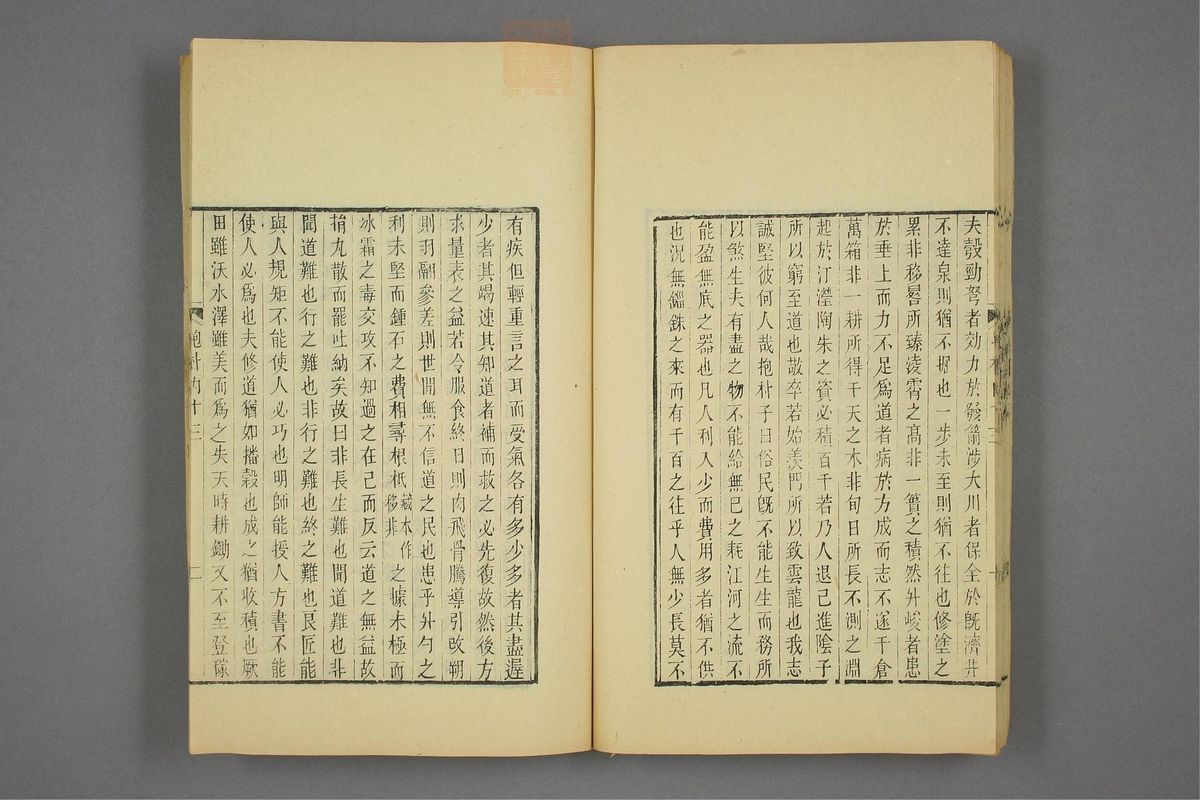 夫彀勁弩者効力於發箭涉大川者保全於旣濟井
不達泉則猶不掘也一步未至則猶不往也修塗之
累非移晷所臻淩霄之高非一簣之積然升峻者患
於垂上而力不足爲道者病於方成而志不遂千倉
萬箱非一耕所得干天之木非旬日所長不測之淵
起於汀瀅陶朱之資必積百千若乃人退己進陰子
所以窮至道也敬卒若始羨門所以致雲龍也我志
誠堅彼何人哉抱朴子曰俗民旣不能生生而務所
以煞生夫有盡之物不能給無已之耗江河之流不
能盈無底之器也凡人利入少而費用多者猶不供
也況無錙銖之來而有千百之往乎人無少長莫不
有疾但輕重言之耳而受氣各有多少多者其盡遲
少者其竭速其知道者補而救之必先復故然後方
求量表之益若令服食終日則肉飛骨騰導引改朔
則羽翮參差則世閒無不信道之民也患乎升勺之
利未堅而鍾石之費相尋根柢藏本作移非之據未極而
冰霜之毒交攻不知過之在己而反云道之無益故
捐丸散而罷吐納矣故曰非長生難也聞道難也非
聞道難也行之難也非行之難也終之難也良匠能
與人規矩不能使人必巧也明師能授人方書不能
使人必爲也夫修道猶如播穀也成之猶收積也厥
田雖沃水澤雖美而爲之失天時耕鋤又不至登稼
抱朴內十三
二